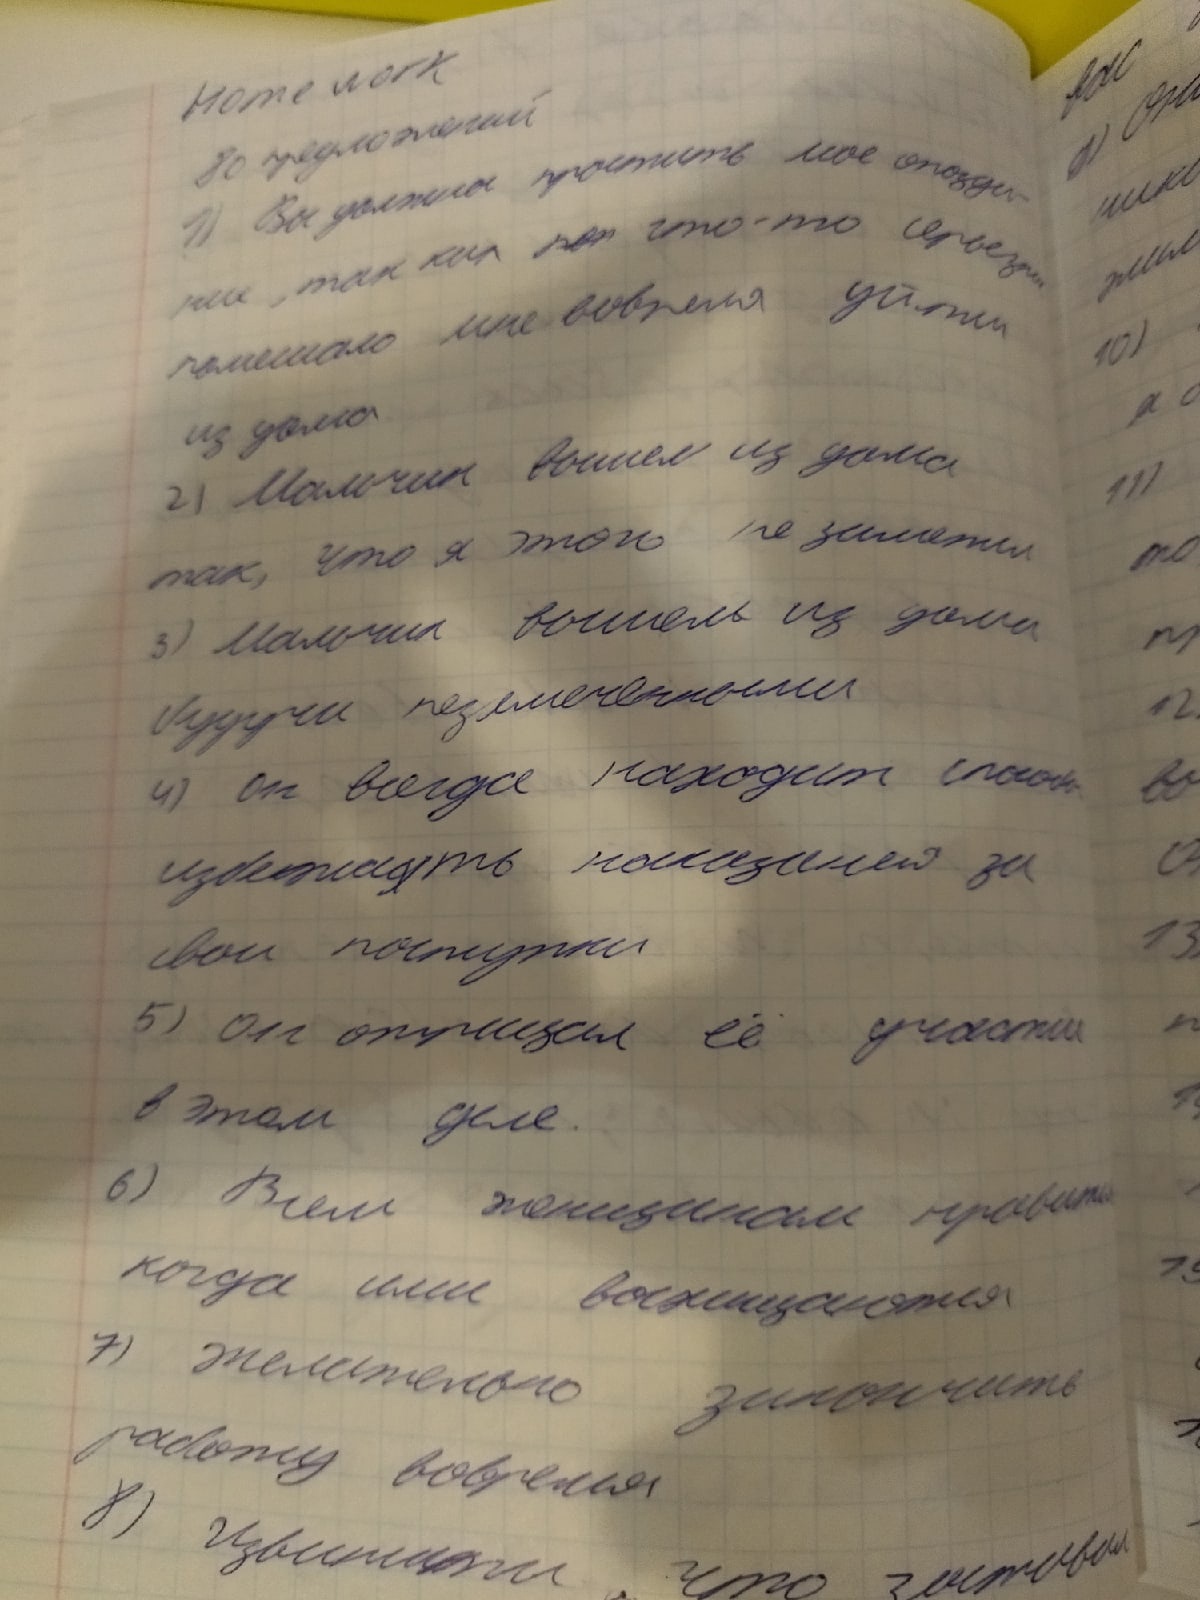 Home work
80 предложений
1) Вы должны простить мое опозда-
ние, так как что-то серьезное
помешало мне вовремя уйти
из дома
2) Мальчик вышел из дома
так, что я этого не заметил
3) Мальчик вышель из дома
будучи незамеченными
4) Он всегда находит способ
избежать наказаней за
свои поступки
5) Он отрицал её участи
в этом деле.
6) Всем женщинам нравится
когда ими восхищаются
7) Желательно закончить
работу вовремя
8) Извините, что заставил
10)
11)